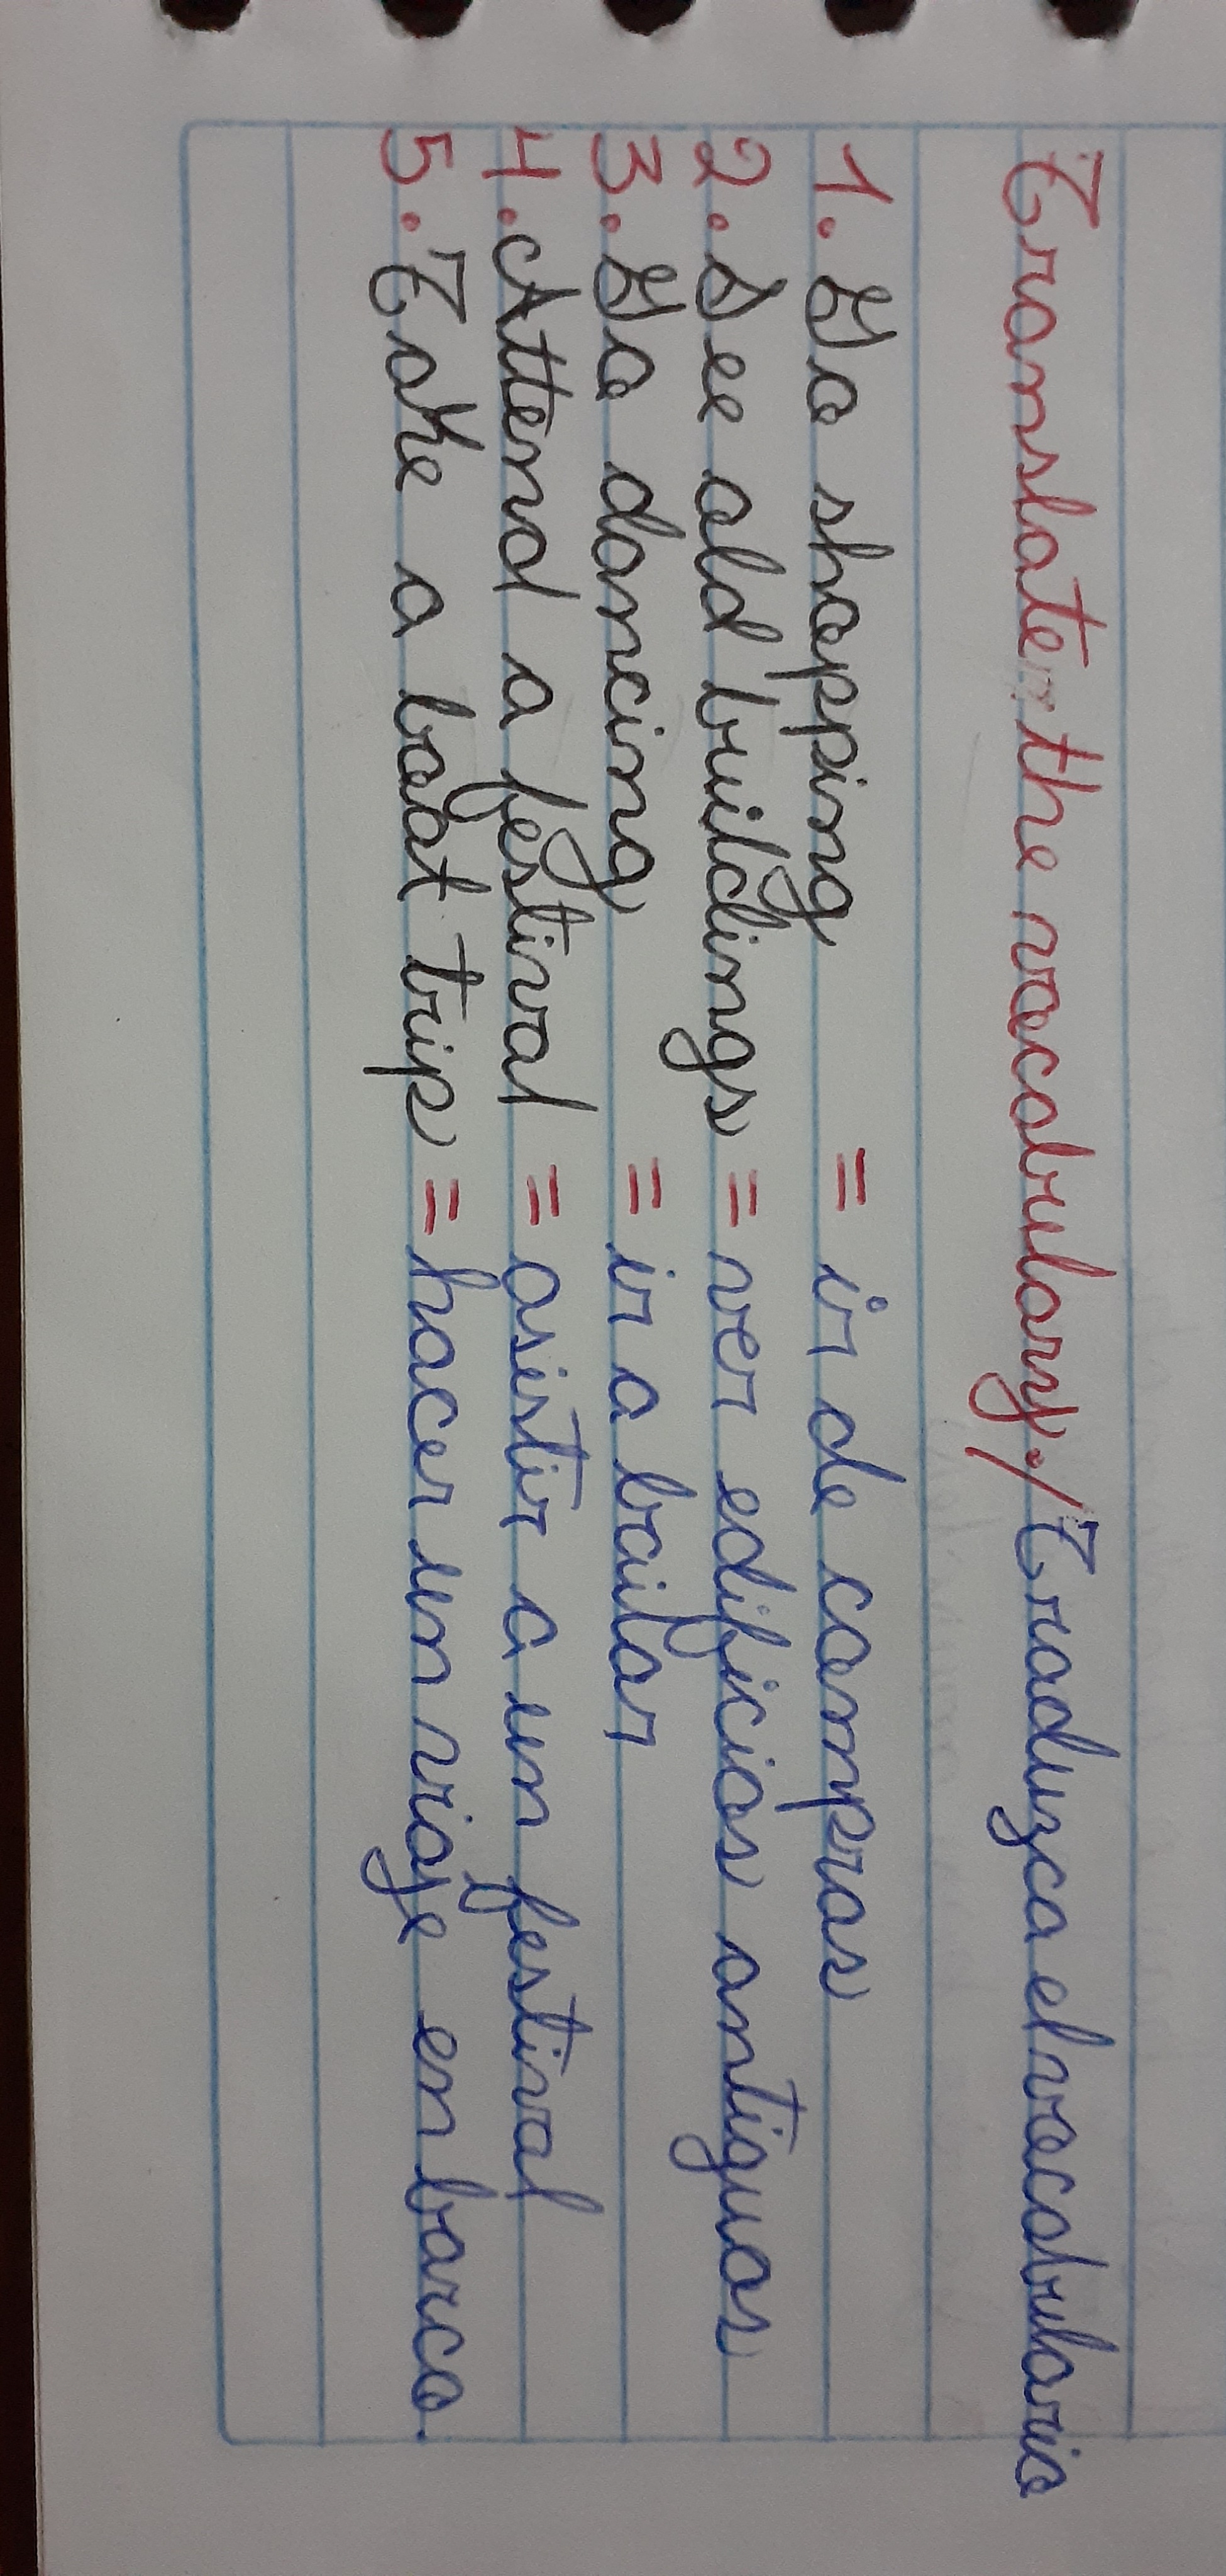 Translate the vocabulary./Traduzca el vocabulario
1. Go shopping = ir de compras
2. See old buildings = ver edificios antiguos
3. Go dancing = ir a bailar
4. Attend a festival = asistir a un festival
5. Take a boat trip = hacer un viaje en barco.